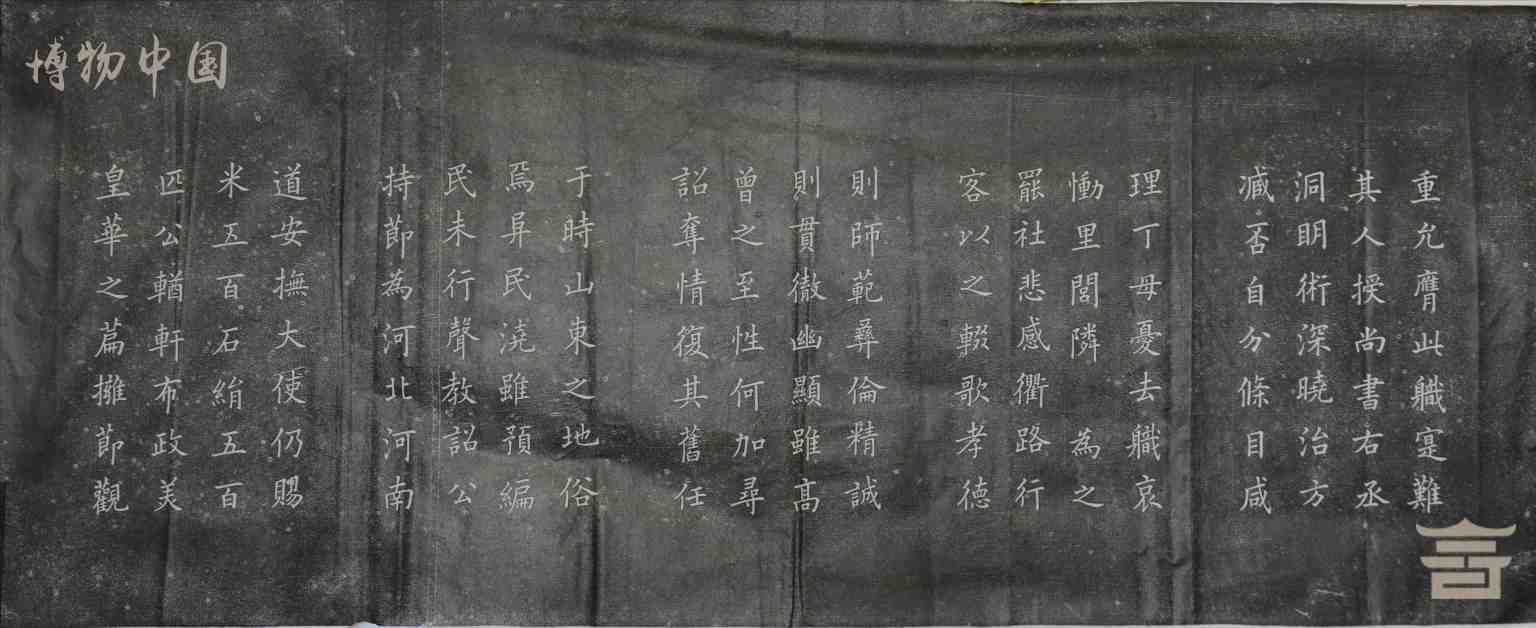 博物中国
重允膺此職寔難
其人授尚書右丞
洞明術深曉治方
臧否自分條目咸
理丁母憂去職哀
慟里閭隣為之
罷社悲感衢路行
客以之輟歌孝德
則師範彝倫精誠
則貫徹幽顯雖高
曾之至性何加尋
詔奪情復其舊任
于時山東之地俗
阜民澆雖預編
民未行聲教詔公
持節為河北河南
道安撫大使仍賜
米五百石絹五百
匹公輶軒布政美
皇華之篇擁節觀